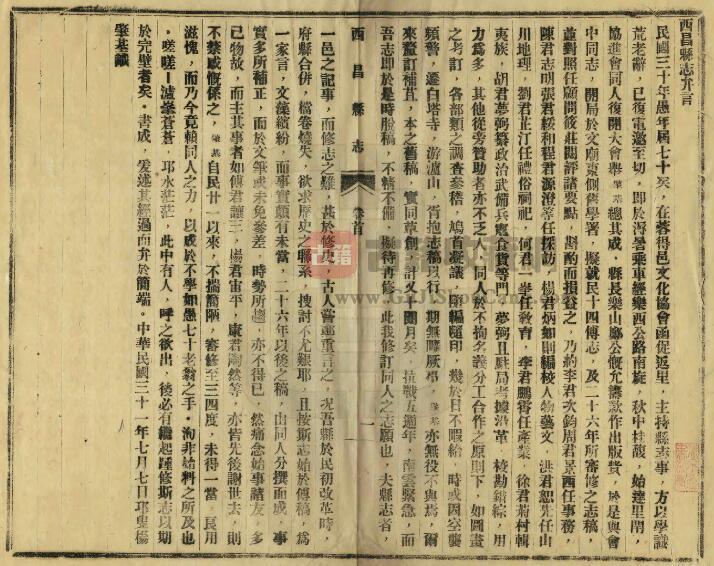 西昌縣志弁言
民國三十年愚年屆七十矣，在蓉得邑文化協會函促返里，主持縣志事，方以學識
荒老辭，已復電邀至切，即於溽暑乘車經樂西公路南旋，秋中桂馥，始達里閈，
協進會同人復開大會舉肇基總其成，縣長樂山鄺公慨允籌款作出版費，於是與會
中同志，開局於文廟東側舊學署，擬就民十四傅志，及二十六年所審修之志稿，
並對照任顧問筱莊閱評諸要點，斟酌而損益之，乃約李君次鈞周君景西任事務，
陳君志明張君綬和程君源澄等任採訪，楊君炳如則編校人物藝文，洪君恕先任山
川地理，劉君芷汀任禮俗祠祀，何君一擧任教育，李君鵬霄任產業，徐君菊村輯
夷族，胡君夢弼纂政治武備兵
食貨等門，夢弼且駐局考據沿革，校勘錯綜，用
力爲多，其他從旁贊助者亦不乏人，同人於不拘名義分工合作之原則下，如圖畫
之考訂，各部類之調查參稽，鳩首凝議，隨編隨印，幾於日不暇給，時或因空襲
頻警，遷白塔寺，游瀘山，胥抱志稿以行，期無曠厥事，肇基亦無役不與焉，爾
來釐訂補苴，本之舊稿，實同草創，計又十閱月矣，抗戰五週年，南雲緊急，而
吾志即於是時脫稿，不精不備，擬待再修，此我修訂同人之志願也，夫縣志者，
西昌縣志 卷首 一
一邑之記事，而修志之難，甚於修史，古人嘗鄭重言之，况吾縣於民初改革時，
府縣合併，檔卷燒失，欲求歷史之聯系，搜討不尤艱耶，且按斯志始於傅稿，爲
一家言，文藻繽紛，而事實頗有未當，二十六年以後之稿，由同人分撰而成，事
實多所補正，而於文筆或未免參差，時勢所趨，亦不得已，然痛念始事諸友，多
已物故，而主其事者如傅君讓三，楊君宙平，康君陶然等，亦皆先後謝世去，則
不禁感慨係之，肇基自民廿一以來，不揣譾陋，審修至三四度，未得一當，良用
滋愧，而乃今竟賴同人之力，以成於不學如愚七十老翁之手，洵非始料之所及也
，嗟嗟！瀘峯蒼蒼，邛水茫茫，此中有人，呼之欲出，後必有繼起踵修斯志以期
於完璧者矣。書成，爰述其經過而弁於簡端。中華民國三十一年七月七日邛叟楊
肇基識
古籍
www.GuJiShuCan.com